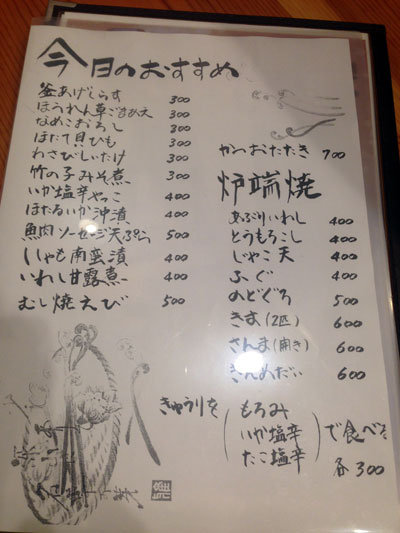 今日のおすすめ
釜あげしらす 300
ほうれん草ごまあえ 300
なめこおろし 300
ほたて貝ひも 300
わさびしいたけ 300
竹の子みそ煮 300
いか塩辛やっこ 400
ほたるいか沖漬 400
魚肉ソーセージ天ぷら 500
ししゃも南蛮漬 400
いわし甘露煮 400
むし焼えび 500
かつおたたき 700
炉端焼
あぶりいわし 400
とうもろこし 400
じゃこ天 400
ふぐ 400
のどぐろ 500
きす(2匹) 600
さんま(開き) 600
きんめだい 600
きゅうりを
もろみ
いか塩辛
たこ塩辛
で食べる
各300